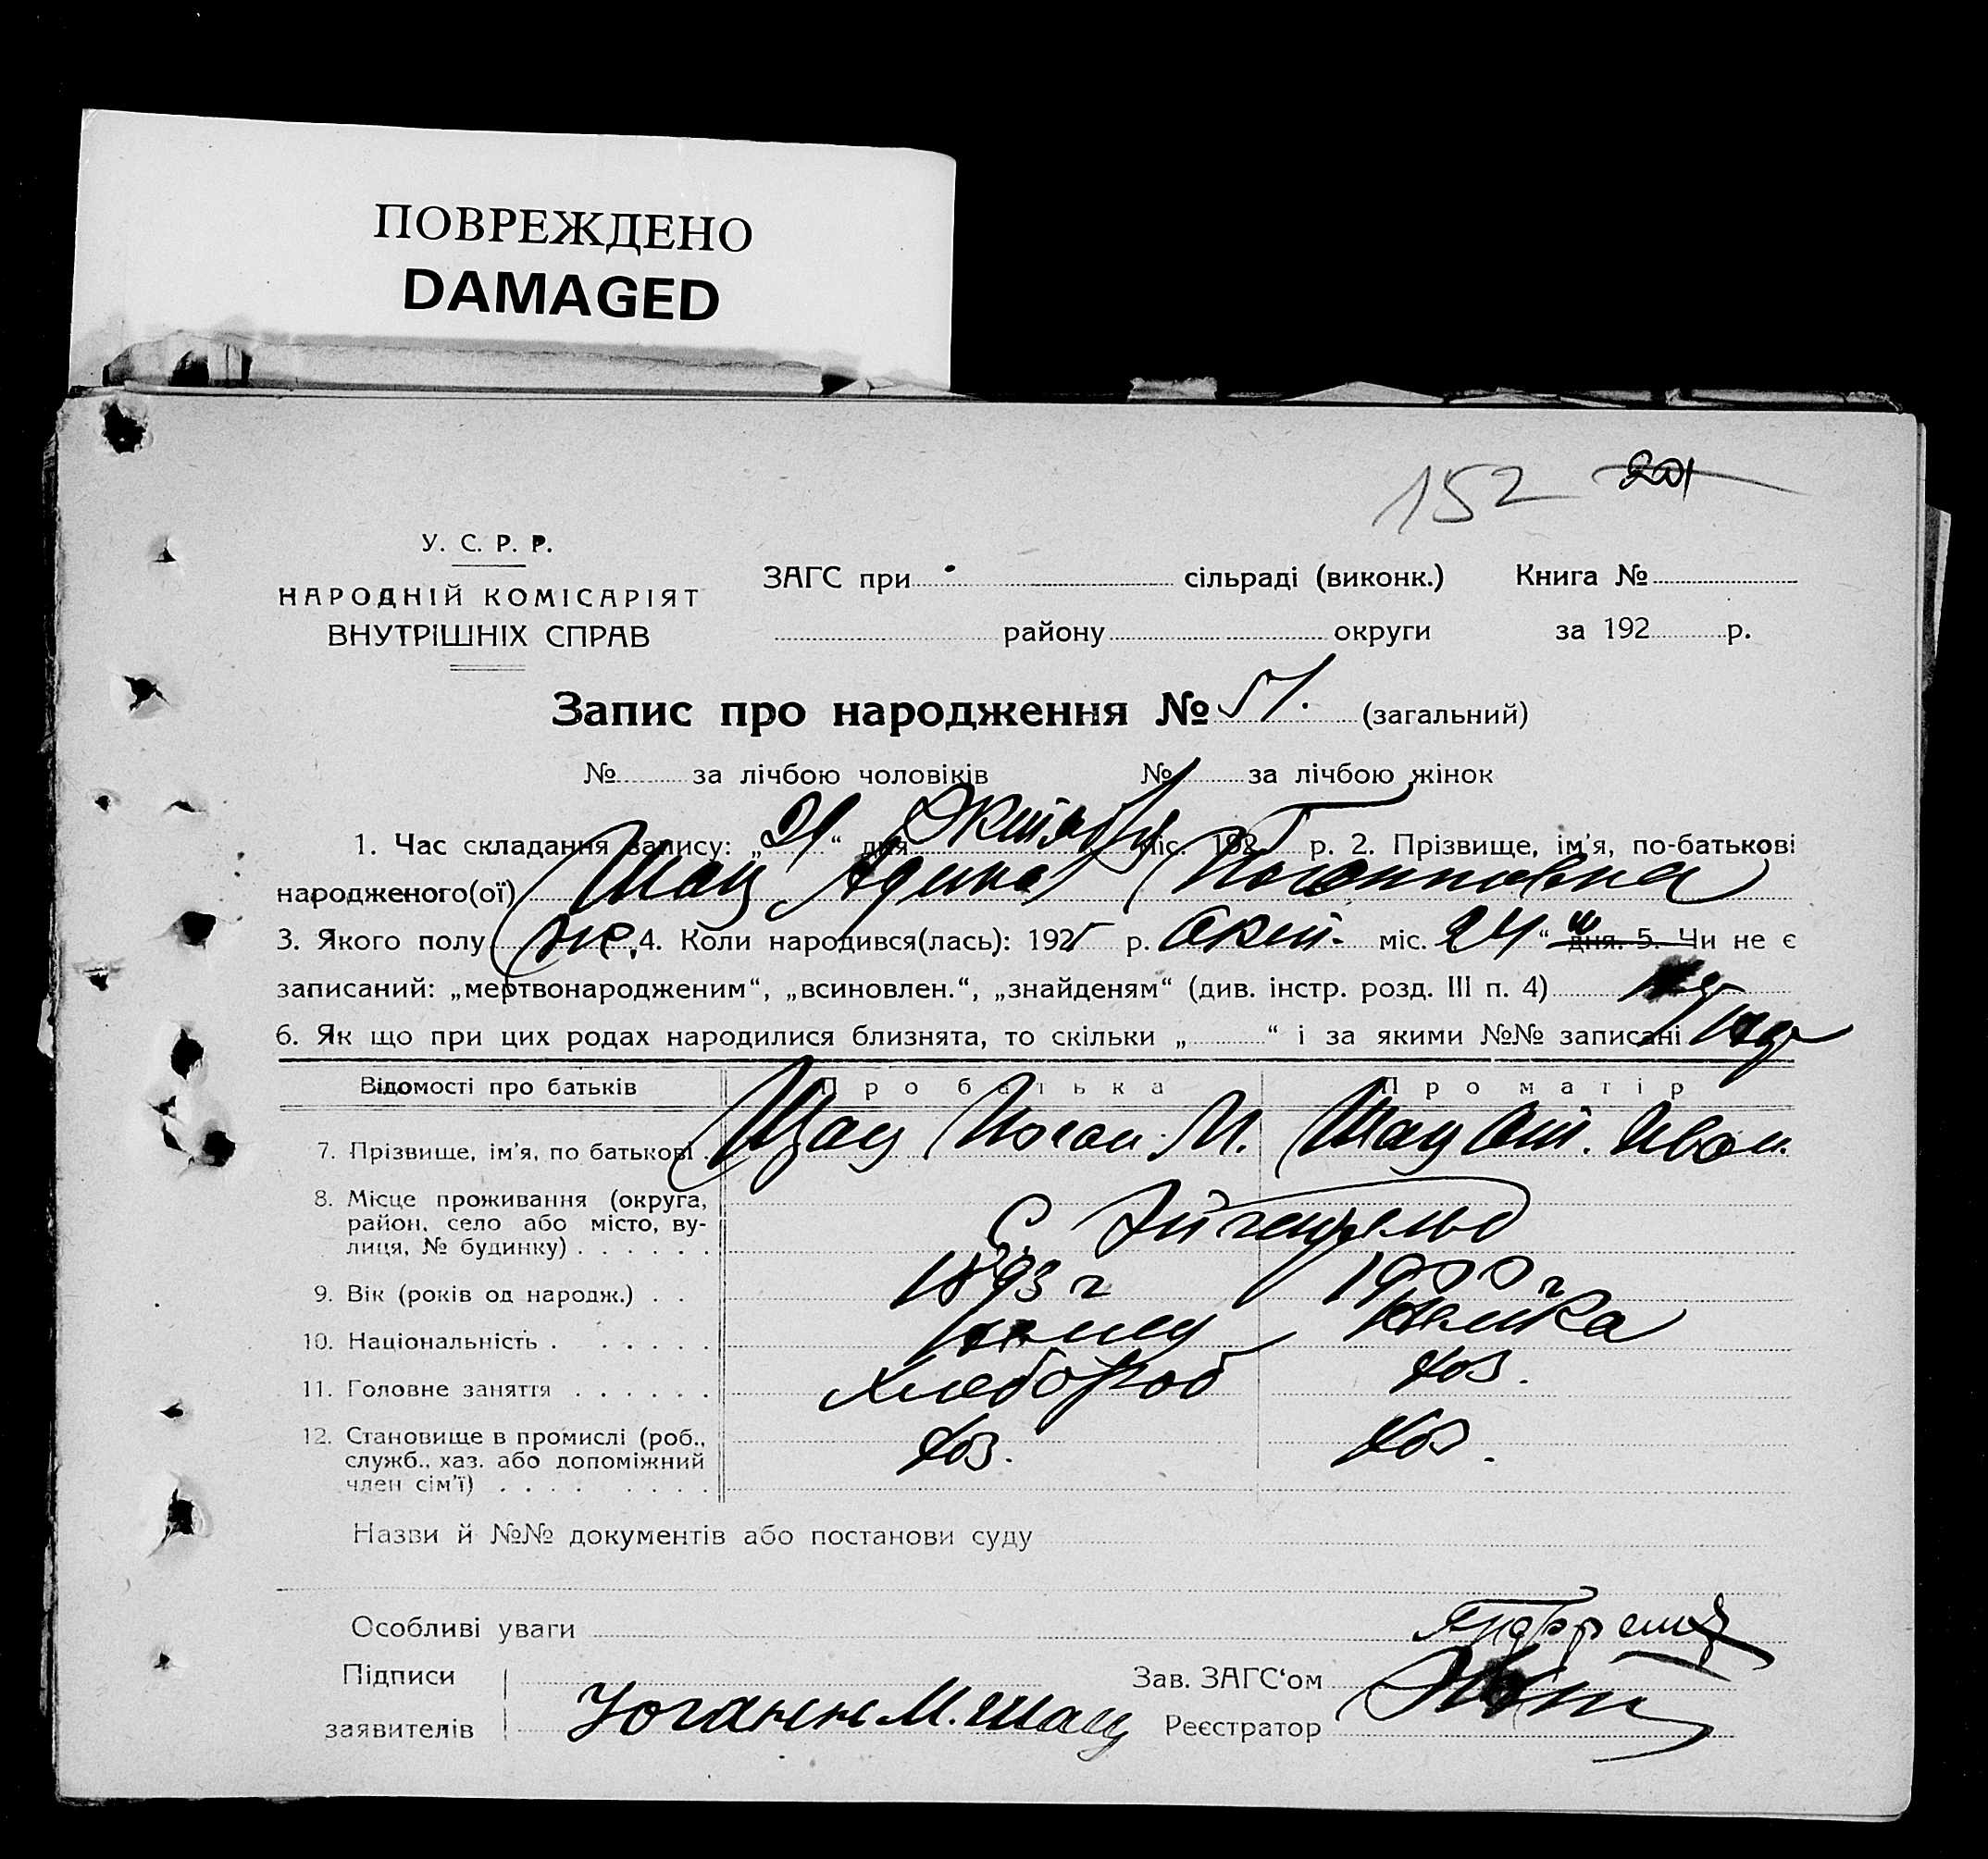 ПОВРЕЖДЕНО
DAMAGED
152 201
У. С. Р. Р.
НАРОДНІЙ КОМІСАРІЯТ
ВНУТРІШНІХ СПРАВ
ЗАГС при сільраді (виконк.) Книга №
району округи за 192 р.
Запис про народження № 51. (загальний)
№ за лічбою чоловіків № за лічбою жінок
1. Час складання запису: „31“ дня Октября міс. 192 р. 2. Прізвище, ім'я, по-батькові
народженого(ої) Шац Адина Иоганновна
3. Якого полу же. 4. Коли народився(лась): 192 р. Окт. міс. 24 “ дня. 5. Чи не є
записаний: „мертвонародженим“, „всиновлен.“, „знайденям“ (див. інстр. розд. III п. 4)
6. Як що при цих родах народилися близнята, то скільки „ “ і за якими №№ записані
Відомості про батьків Про батька Про матір
7. Прізвище, ім'я, по батькові Шац Иоган. М. Шац От. Иван.
8. Місце проживання (округа,
район, село або місто, ву-
лиця, № будинку) С. Эйгенфельд
9. Вік (років од народж.) 1893 г 1900 г
10. Національність немец Немка
11. Головне заняття хлебороб хоз.
12. Становище в промислі (роб.,
служб., хаз. або допоміжний
член сім'ї) хоз. хоз.
Назви й №№ документів або постанови суду
Особливі уваги
Підписи Зав. ЗАГС'ом
заявителів Иоганн М. Шац Реєстратор